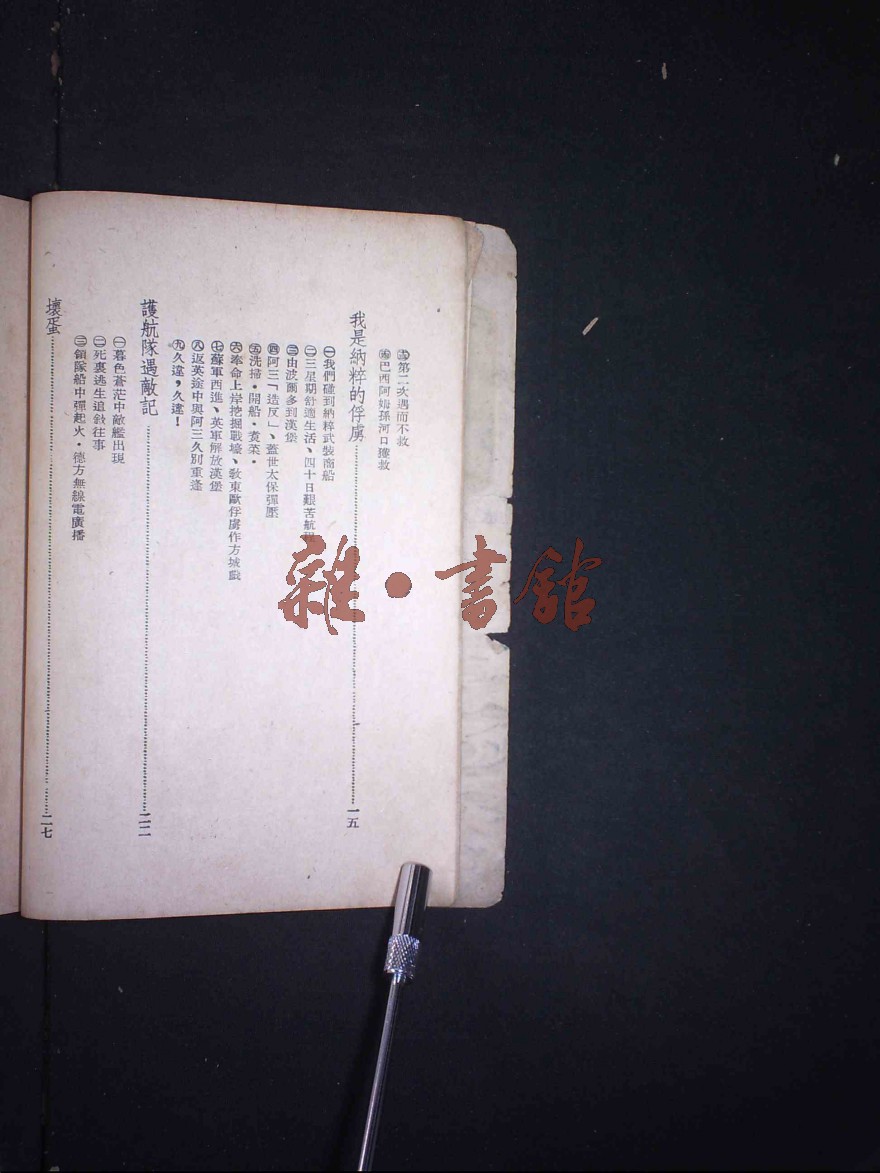 ㊂第二次遇而不救
㊃巴西阿姆孫河口獲救
我是納粹的俘虜……一五
㊀我們碰到納粹武裝商船
㊁三星期舒適生活、四十日艱苦航程
㊂由波爾多到漢堡
㊃阿三「造反」、蓋世太保彈壓
㊄洗掃・開船・賣菜・
㊅奉命上岸挖掘戰壕、敎東歐俘虜作方城戲
㊆蘇軍西進、英軍解放漢堡
㊇返英途中與阿三久別重逢
㊈久違，久違！
護航隊遇敵記……二二
㊀暮色蒼茫中敵艦出現
㊁死裏逃生追敍往事
㊂領隊船中彈起火・德方無線電廣播
壞蛋……二七
雜・書館